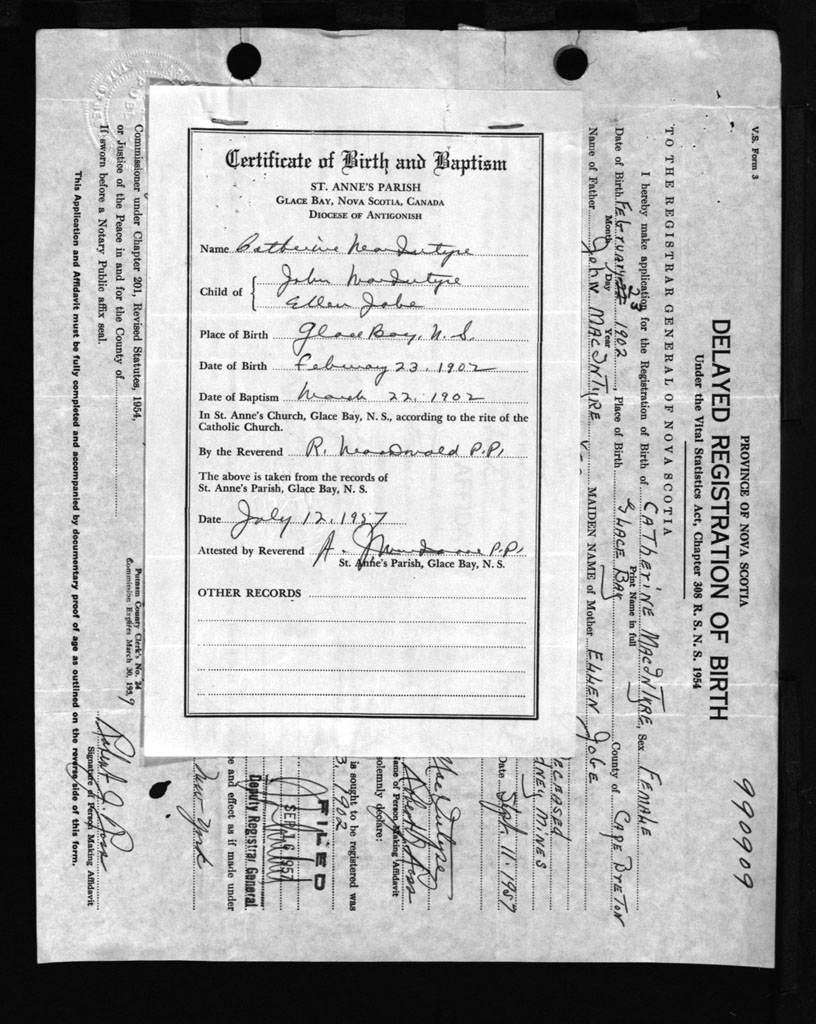 Certificate of Birth and Baptism
ST. ANNE'S PARISH
GLACE BAY, NOVA SCOTIA, CANADA
DIOCESE OF ANTIGONISH
Name Catherine MacIntyre
Child of { John MacIntyre
Ellen Jobe
Place of Birth Glace Bay, N.S.
Date of Birth February 23, 1902
Date of Baptism March 22, 1902
In St. Anne's Church, Glace Bay, N. S., according to the rite of the
Catholic Church.
By the Reverend R. MacDonald P.P.
The above is taken from the records of
St. Anne's Parish, Glace Bay, N. S.
Date July 12, 1957
Attested by Reverend A. P.P.
St. Anne's Parish, Glace Bay, N. S.
OTHER RECORDS
V.S. Form 3
990909
PROVINCE OF NOVA SCOTIA
DELAYED REGISTRATION OF BIRTH
Under the Vital Statistics Act, Chapter 308 R. S. N. S. 1954
TO THE REGISTRAR GENERAL OF NOVA SCOTIA
I hereby make application for the Registration of Birth of CATHERINE MACINTYRE, Sex FEMALE
Print Name in full
Date of Birth FEBRUARY 23 1902, Place of Birth GLACE BAY County of CAPE BRETON
Month Day Year
Name of Father JOHN MACINTYRE MAIDEN NAME of Mother ELLEN JOBE
ECEASED
DNEY MINES
Date Sept. 11. 1957
MacIntyre
Name of Person Making Affidavit
olemnly declare:
is sought to be registered was
3, 1902
be and effect as if made under
FILED
SEP 16 1957
Deputy Registrar General
New York
Commissioner under Chapter 201, Revised Statutes, 1954,
or Justice of the Peace in and for the County of
If sworn before a Notary Public affix seal.
Putnam County Clerk's No. 24
Commission Expires March 30, 1959
Signature of Person Making Affidavit
This Application and Affidavit must be fully completed and accompanied by documentary proof of age as outlined on the reverse side of this form.